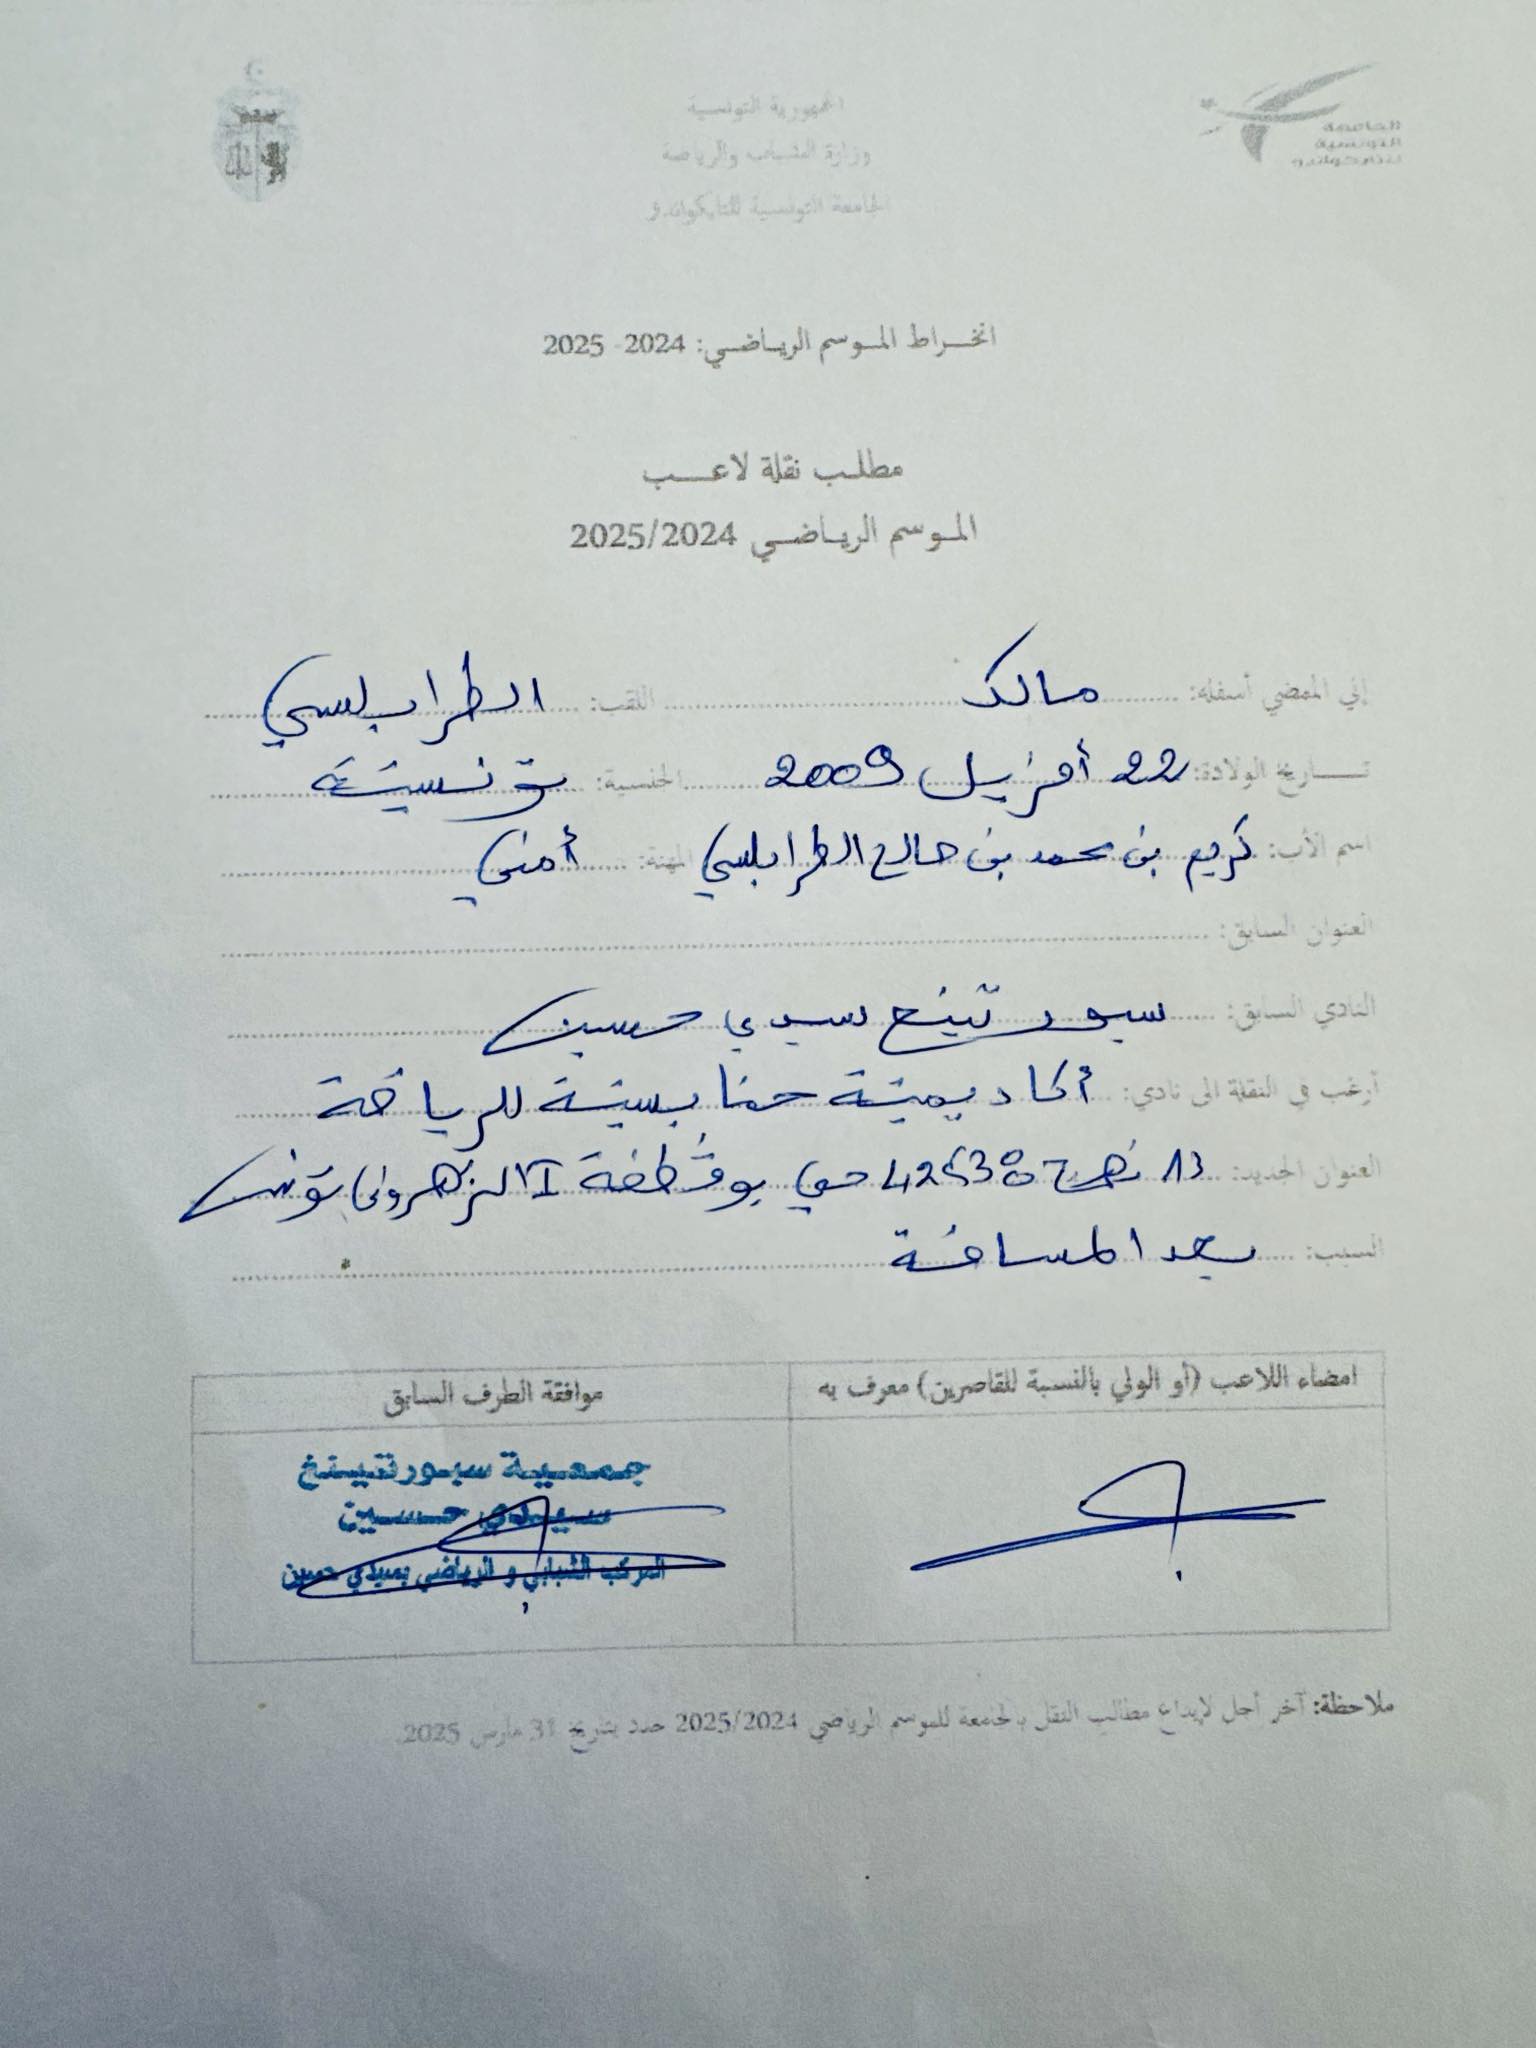 الجمهورية التونسية
وزارة الشباب والرياضة
الجامعة التونسية للتايكواندو
الجامعة
التونسية
للتايكواندو
انخراط الموسم الرياضي: 2024- 2025
مطلب نقلة لاعب
الموسم الرياضي 2025/2024
إني الممضي أسفله: مالك اللقب: الطرابلسي
تاريخ الولادة: 22 أفريل 2009 الجنسية: تونسية
اسم الأب: كريم بن محمد بن صالح الطرابلسي المهنة: أمني
العنوان السابق:
النادي السابق: سبورتينغ سيدي حسين
أرغب في النقلة الى نادي: أكاديمية للرياضة
العنوان الجديد: 13 نهج 42538 حي بوقطفة الزهروني تونس
السبب: بعد المسافة
امضاء اللاعب (أو الولي بالنسبة للقاصرين) معرف به
موافقة الطرف السابق
جمعية سبورتينغ
سيدي حسين
المركب الشبابي و الرياضي بسيدي حسين
ملاحظة: آخر أجل لإيداع مطالب النقل بالجامعة للموسم الرياضي 2025/2024 حدد بتاريخ 31 مارس 2025.